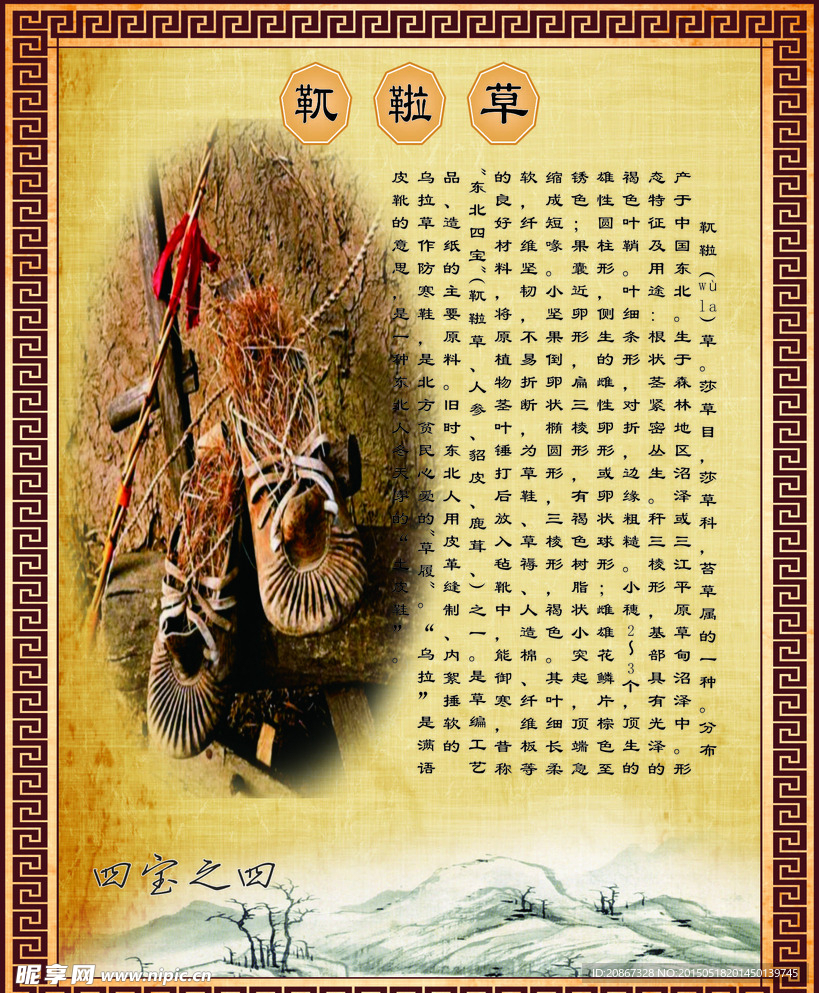 靰鞡草
靰鞡（wùla）草。莎草目，莎草科，苔草属的一种。分布
产于中国东北。生于森林地区沼泽或三江平原草甸沼泽中。形
态特征及用途：根状茎紧密丛生。秆三棱形，基部具有光泽的
褐色叶鞘。叶细条形，对折，边缘粗糙。小穗2～3个，顶生的
雄性圆柱形，侧生的雌性卵形，或卵状球形；雌雄花鳞片棕色至
锈色；果囊近卵形，扁三棱形，有褐色树脂状小突起，顶端急
缩成短喙。小坚果倒卵状椭圆形，三棱形，褐色。其叶细长柔
软，纤维坚韧，不易折断，为草鞋、草褥、人造棉、纤维板等
的良好材料，将原植物茎叶锤打后放入毡靴中，能御寒，昔称
“东北四宝”（靰鞡草、人参、貂皮、鹿茸、）之一。是草编工艺
品、造纸的主要原料。旧时东北人用皮革缝制、内絮捶软的
乌拉草作防寒鞋，是北方贫民心爱的“草履”。“乌拉”是满语
皮靴的意思，是一种东北人冬天穿的“土皮鞋”。
四宝之四
昵享网 www.nipic.cn
ID:20867328 NO:20150518201450139745